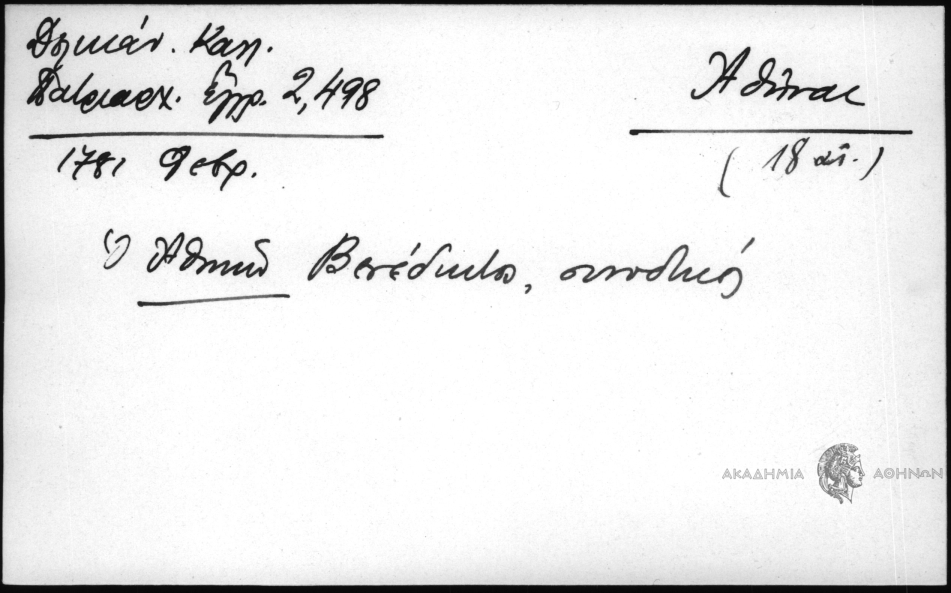 Δελικάν. Καλ.
Πατριαρχ. Ἔγγρ. 2,498
Ἀθῆναι
1781 Φεβρ.
(18 αἰ.)
Ὁ Ἀθηνῶν Βενέδικτος, συνοδικός
ΑΚΑΔΗΜΙΑ ΑΘΗΝΩΝ